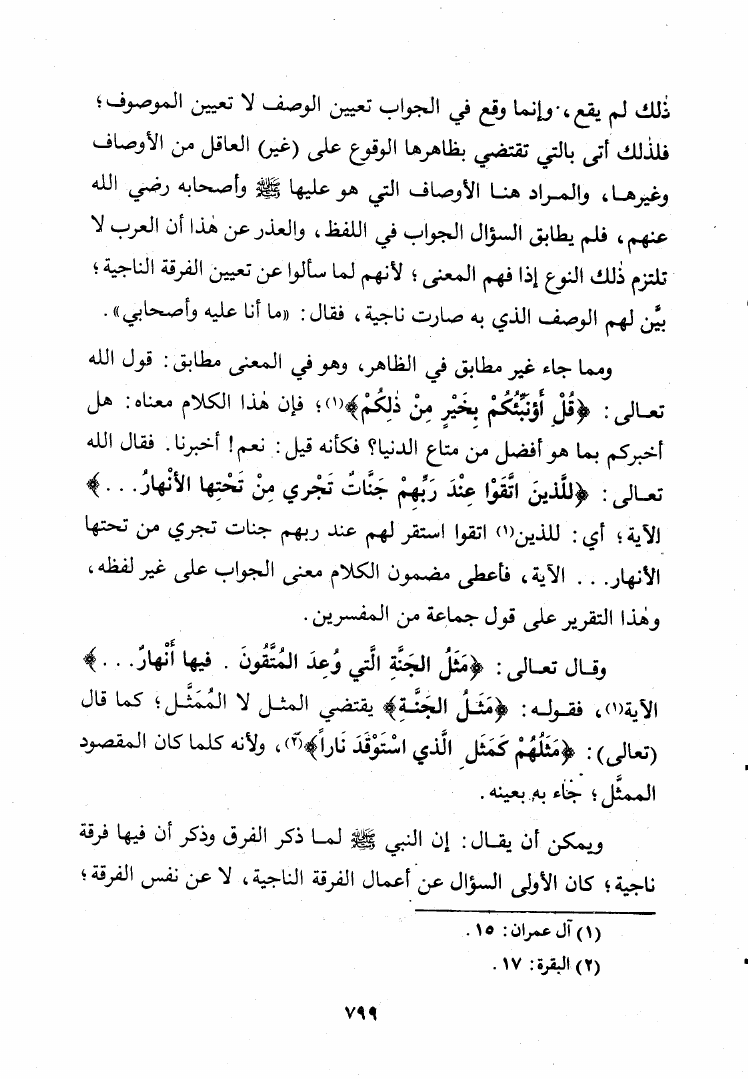 ذٰلك لم يقع، وإنما وقع في الجواب تعيين الوصف لا تعيين الموصوف؛
فلذٰلك أتى بالتي تقتضي بظاهرها الوقوع على (غير) العاقل من الأوصاف
وغيرهـا، والمـراد هنـا الأوصاف التي هو عليها ﷺ وأصحابه رضي الله
عنهم، فلم يطابق السؤال الجواب في اللفظ، والعذر عن هٰذا أن العرب لا
تلتزم ذٰلك النوع إذا فهم المعنى؛ لأنهم لما سألوا عن تعيين الفرقة الناجية؛
بيَّن لهم الوصف الذي به صارت ناجية، فقال: «ما أنا عليه وأصحابي».
ومما جاء غير مطابق في الظاهر، وهو في المعنى مطابق: قول الله
تعـالى: ﴿قُلْ أَؤُنَبِّئُكُمْ بِخَيْرٍ مِنْ ذٰلِكُمْ﴾(١)؛ فإن هٰذا الكلام معناه: هل
أخبركم بما هو أفضل من متاع الدنيا؟ فكأنه قيل: نعم! أخبرنا. فقال الله
تعـالى: ﴿لِلَّذينَ اتَّقَوْا عِنْدَ رَبِّهِمْ جَنَّاتٌ تَجْري مِنْ تَحْتِها الأنْهارُ...﴾
الآية؛ أي: للذين(١) اتقوا استقر لهم عند ربهم جنات تجري من تحتها
الأنهار... الآية، فأعطى مضمون الكلام معنى الجواب على غير لفظه،
وهٰذا التقرير على قول جماعة من المفسرين.
وقـال تعـالى: ﴿مَثَلُ الجَنَّةِ الَّتي وُعِدَ المُتَّقُونَ . فيها أَنْهارٌ...﴾
الآية(١)، فقـولـه: ﴿مَثَـلُ الجَنَّـةِ﴾ يقتضي المثـل لا المُمَثَّـل؛ كما قال
(تعالى): ﴿مَثَلُهُمْ كَمَثَلِ الَّذي اسْتَوْقَدَ نَاراً﴾(٢)، ولأنه كلما كان المقصود
الممثَّل؛ جاء به بعينه.
ويمكن أن يقـال: إن النبي ﷺ لمـا ذكر الفرق وذكر أن فيها فرقة
ناجية؛ كان الأولى السؤال عن أعمال الفرقة الناجية، لا عن نفس الفرقة؛
(١) آل عمران: ١٥.
(٢) البقرة: ١٧.
٧٩٩